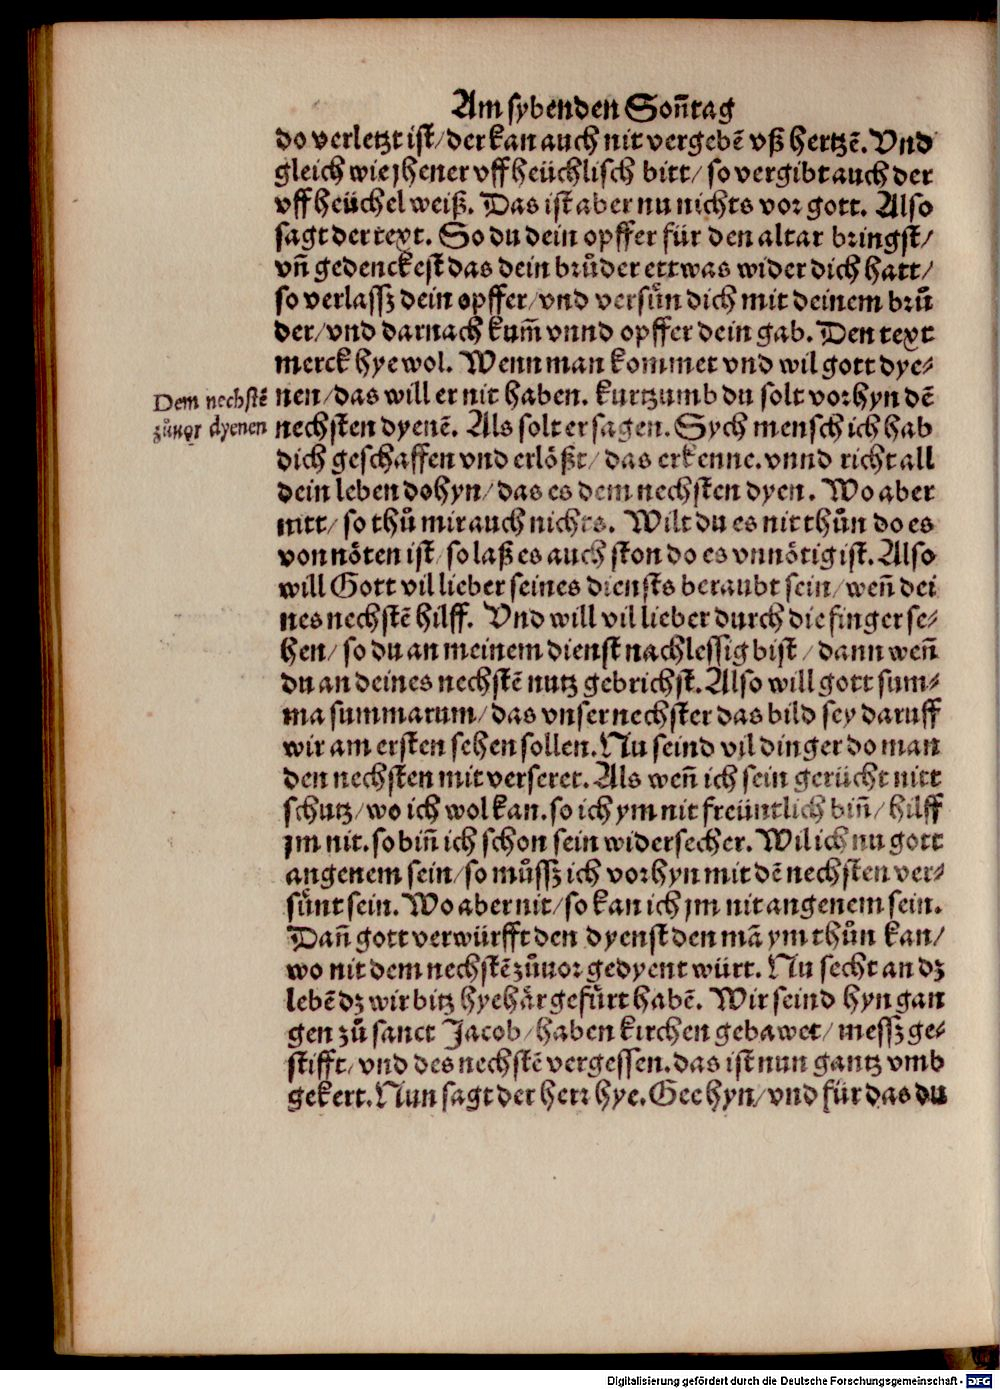 Am sybenden Son̄tag
do verletzt ist/ der kan auch nit vergebē vß hertzē. Vnd
gleich wie jhener vff heüchlisch bitt/ so vergibt auch der
vff heüchel weiß. Das ist aber nu nichts vor gott. Also
sagt der text. So du dein opffer für den altar bringst/
vn̄ gedenckest das dein brůder ettwas wider dich hatt/
so verlassz dein opffer/ vnd versün dich mit deinem brů
der/ vnd darnach kum̄ vnnd opffer dein gab. Den text
merck hye wol. Wenn man kommet vnd wil gott dye⸗
Dem nechstē
zůuor dyenen
nen/ das will er nit haben. kurtzumb du solt vorhyn dē
nechsten dyenē. Als solt er sagen. Sych mensch ich hab
dich geschaffen vnd erlößt/ das erkenne. vnnd richt all
dein leben dohyn/ das es dem nechsten dyen. Wo aber
nitt/ so thů mir auch nichts. Wilt du es nit thůn do es
von nöten ist/ so laß es auch ston do es vnnötig ist. Also
will Gott vil lieber seines diensts beraubt sein/ wen̄ dei
nes nechstē hilff. Vnd will vil lieber durch die finger se⸗
hen/ so du an meinem dienst nachlessig bist/ dann wen̄
du an deines nechstē nutz gebrichst. Also will gott sum⸗
ma summarum/ das vnser nechster das bild sey daruff
wir am ersten sehen sollen. Nu seind vil dinger do man
den nechsten mit verseret. Als wen̄ ich sein gerücht nitt
schutz/ wo ich wol kan. so ich ym nit freüntlich bin̄/ hilff
jm nit. so bin̄ ich schon sein widersecher. Wil ich nu gott
angenem sein/ so můssz ich vorhyn mit dē nechsten ver⸗
sünt sein. Wo aber nit/ so kan ich jm nit angenem sein.
Dan̄ gott verwürfft den dyenst den mā ym thůn kan/
wo nit dem nechstē zůuor gedyent würt. Nu secht an dz
lebē dz wir bitz hyehär gefürt habē. Wir seind hyn gan
gen zů sanct Jacob/ haben kirchen gebawet/ messz ge⸗
stifft/ vnd des nechstē vergessen. das ist nun gantz vmb
gekert. Nun sagt der herr hye. Gee hyn/ vnd für das du
Digitalisierung gefördert durch die Deutsche Forschungsgemeinschaft - DFG